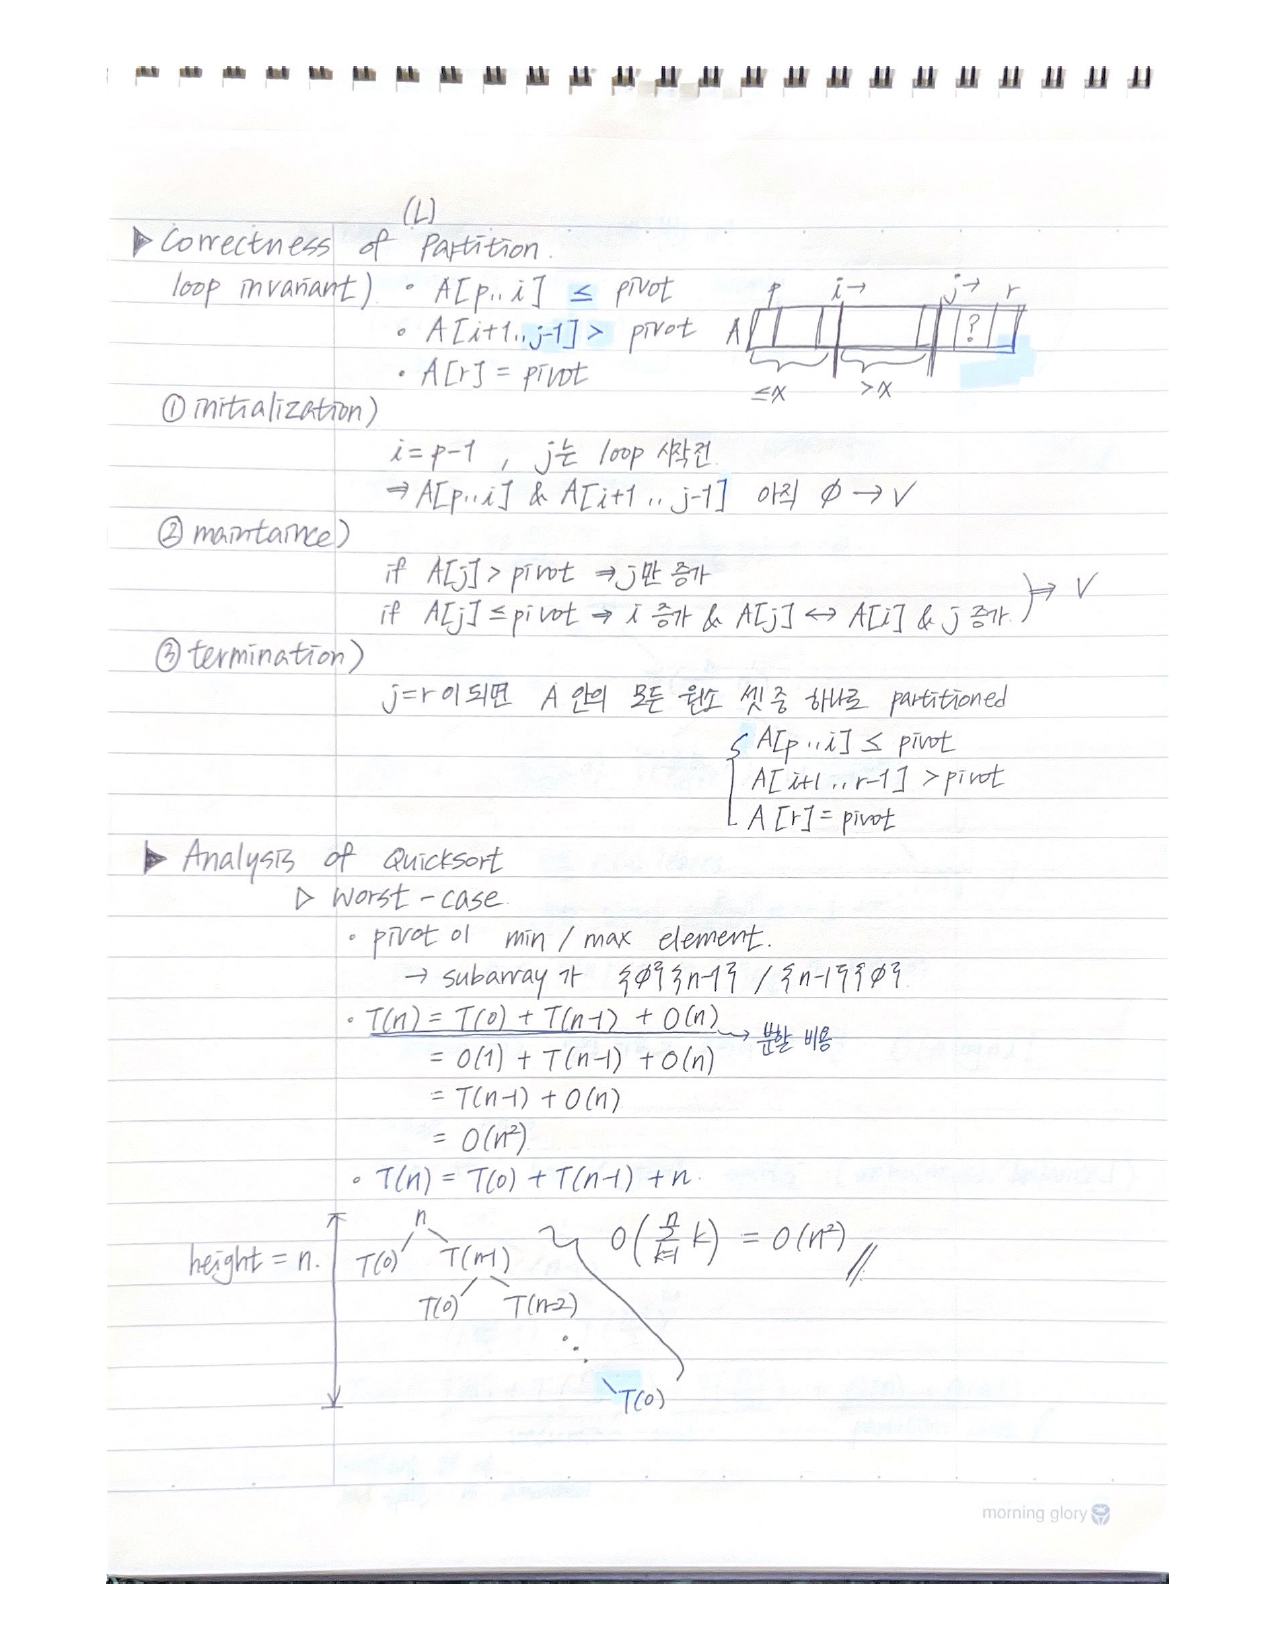 (L)
▶ Correctness of Partition.
loop invariant) • A[p..i] ≤ pivot
• A[i+1..j-1] > pivot
• A[r] = pivot
p i→ j→ r
A ?
≤x >x
① initialization)
i = p-1 , j는 loop 시작전
⇒ A[p..i] & A[i+1..j-1] 아직 ∅ → V
② maintaince)
if A[j] > pivot ⇒ j만 증가
if A[j] ≤ pivot ⇒ i 증가 & A[j] ↔ A[i] & j 증가. ) ⇒ V
③ termination)
j=r 이 되면 A 안의 모든 원소 셋 중 하나로 partitioned
A[p..i] ≤ pivot
A[i+1..r-1] > pivot
A[r] = pivot
▶ Analysis of Quicksort
▷ Worst-case.
• pivot 이 min / max element.
→ subarray 가 {∅}{n-1} / {n-1}{∅}
• T(n) = T(0) + T(n-1) + O(n) → 분할 비용
= O(1) + T(n-1) + O(n)
= T(n-1) + O(n)
= O(n²)
• T(n) = T(0) + T(n-1) + n.
n
height = n. T(0) T(n-1) O(n Σ k=1 k) = O(n²)
T(0) T(n-2)
T(0)
morning glory